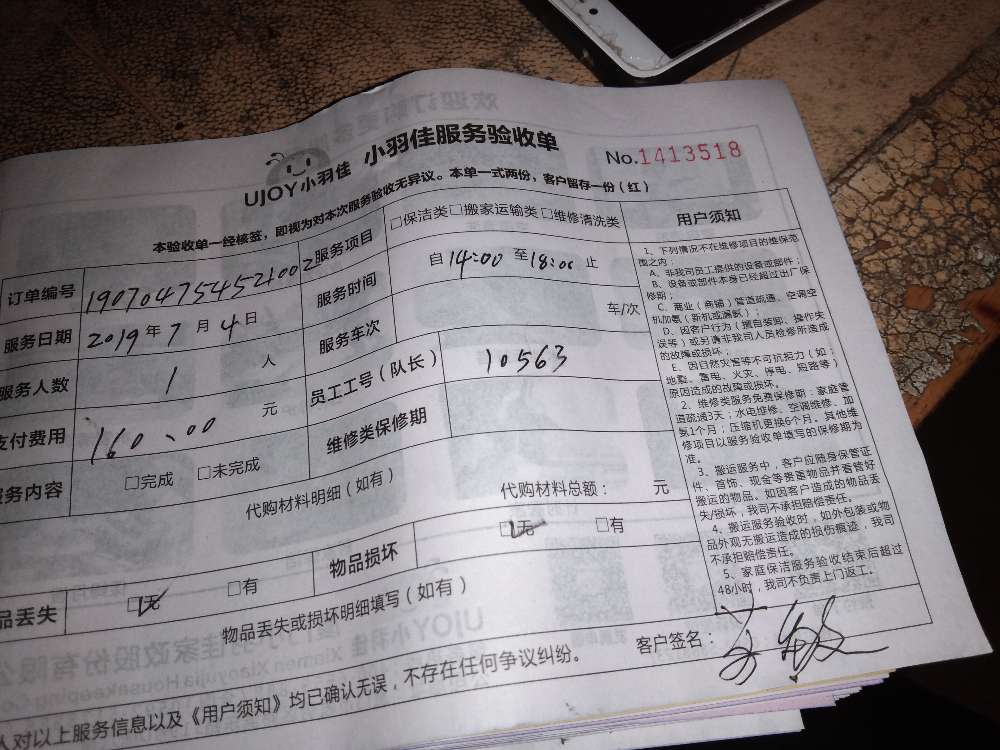 UJOY小羽佳 小羽佳服务验收单 No.1413518
本验收单一经核签，即视为对本次服务验收无异议。本单一式两份，客户留存一份（红）
订单编号 190704754521002 服务项目 □保洁类□搬家运输类□维修清洗类
服务日期 2019年7月4日 服务时间 自14:00至18:00止
服务人数 1 人 服务车次 车/次
支付费用 160.00 元 员工工号（队长） 10563
服务内容 □完成 □未完成 维修类保修期
代购材料明细（如有） 代购材料总额： 元
品丢失 □无 □有 物品损坏 □无 □有
物品丢失或损坏明细填写（如有）
人对以上服务信息以及《用户须知》均已确认无误，不存在任何争议纠纷。 客户签名：
用户须知
1、下列情况不在维修项目的维保范
围之内：
A、非我司员工提供的设备或部件；
B、设备或部件本身已经超过出厂保
修期；
C、商业（商铺）管道疏通、空调空
机加氨（新机或漏氨）；
D、因客户行为（擅自装卸、操作失
误等）或另请非我司人员检修所造成
的故障或损坏；
E、因自然灾害等不可抗拒力（如：
地震、雷电、火灾、停电、短路等）
原因造成的故障或损坏。
2、维修类服务免费保修期：家庭管
道疏通3天；水电维修、空调维修、加
氨1个月；压缩机更换6个月。其他维
修项目以服务验收单填写的保修期为
准。
3、搬运服务中，客户应随身保管证
件、首饰、现金等贵重物品并看管好
搬运的物品。如因客户造成的物品丢
失/损坏，我司不承担赔偿责任。
4、搬运服务验收时，如外包装或物
品外观无搬运造成的损伤痕迹，我司
不承担赔偿责任。
5、家庭保洁服务验收结束后超过
48小时，我司不负责上门返工。